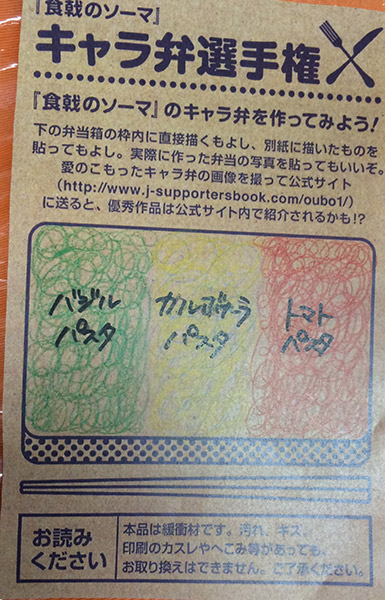 『食戟のソーマ』
キャラ弁選手権
『食戟のソーマ』のキャラ弁を作ってみよう!
下の弁当箱の枠内に直接描くもよし、別紙に描いたものを
貼ってもよし。実際に作った弁当の写真を貼ってもいいぞ。
愛のこもったキャラ弁の画像を撮って公式サイト
(http://www.j-supportersbook.com/oubo1/)
に送ると、優秀作品は公式サイト内で紹介されるかも!?
バジル
パスタ
カルボナーラ
パスタ
トマト
パスタ
お読み
ください
本品は緩衝材です。汚れ、キズ、
印刷のカスレやへこみ等があっても、
お取り換えはできません。ご了承ください。